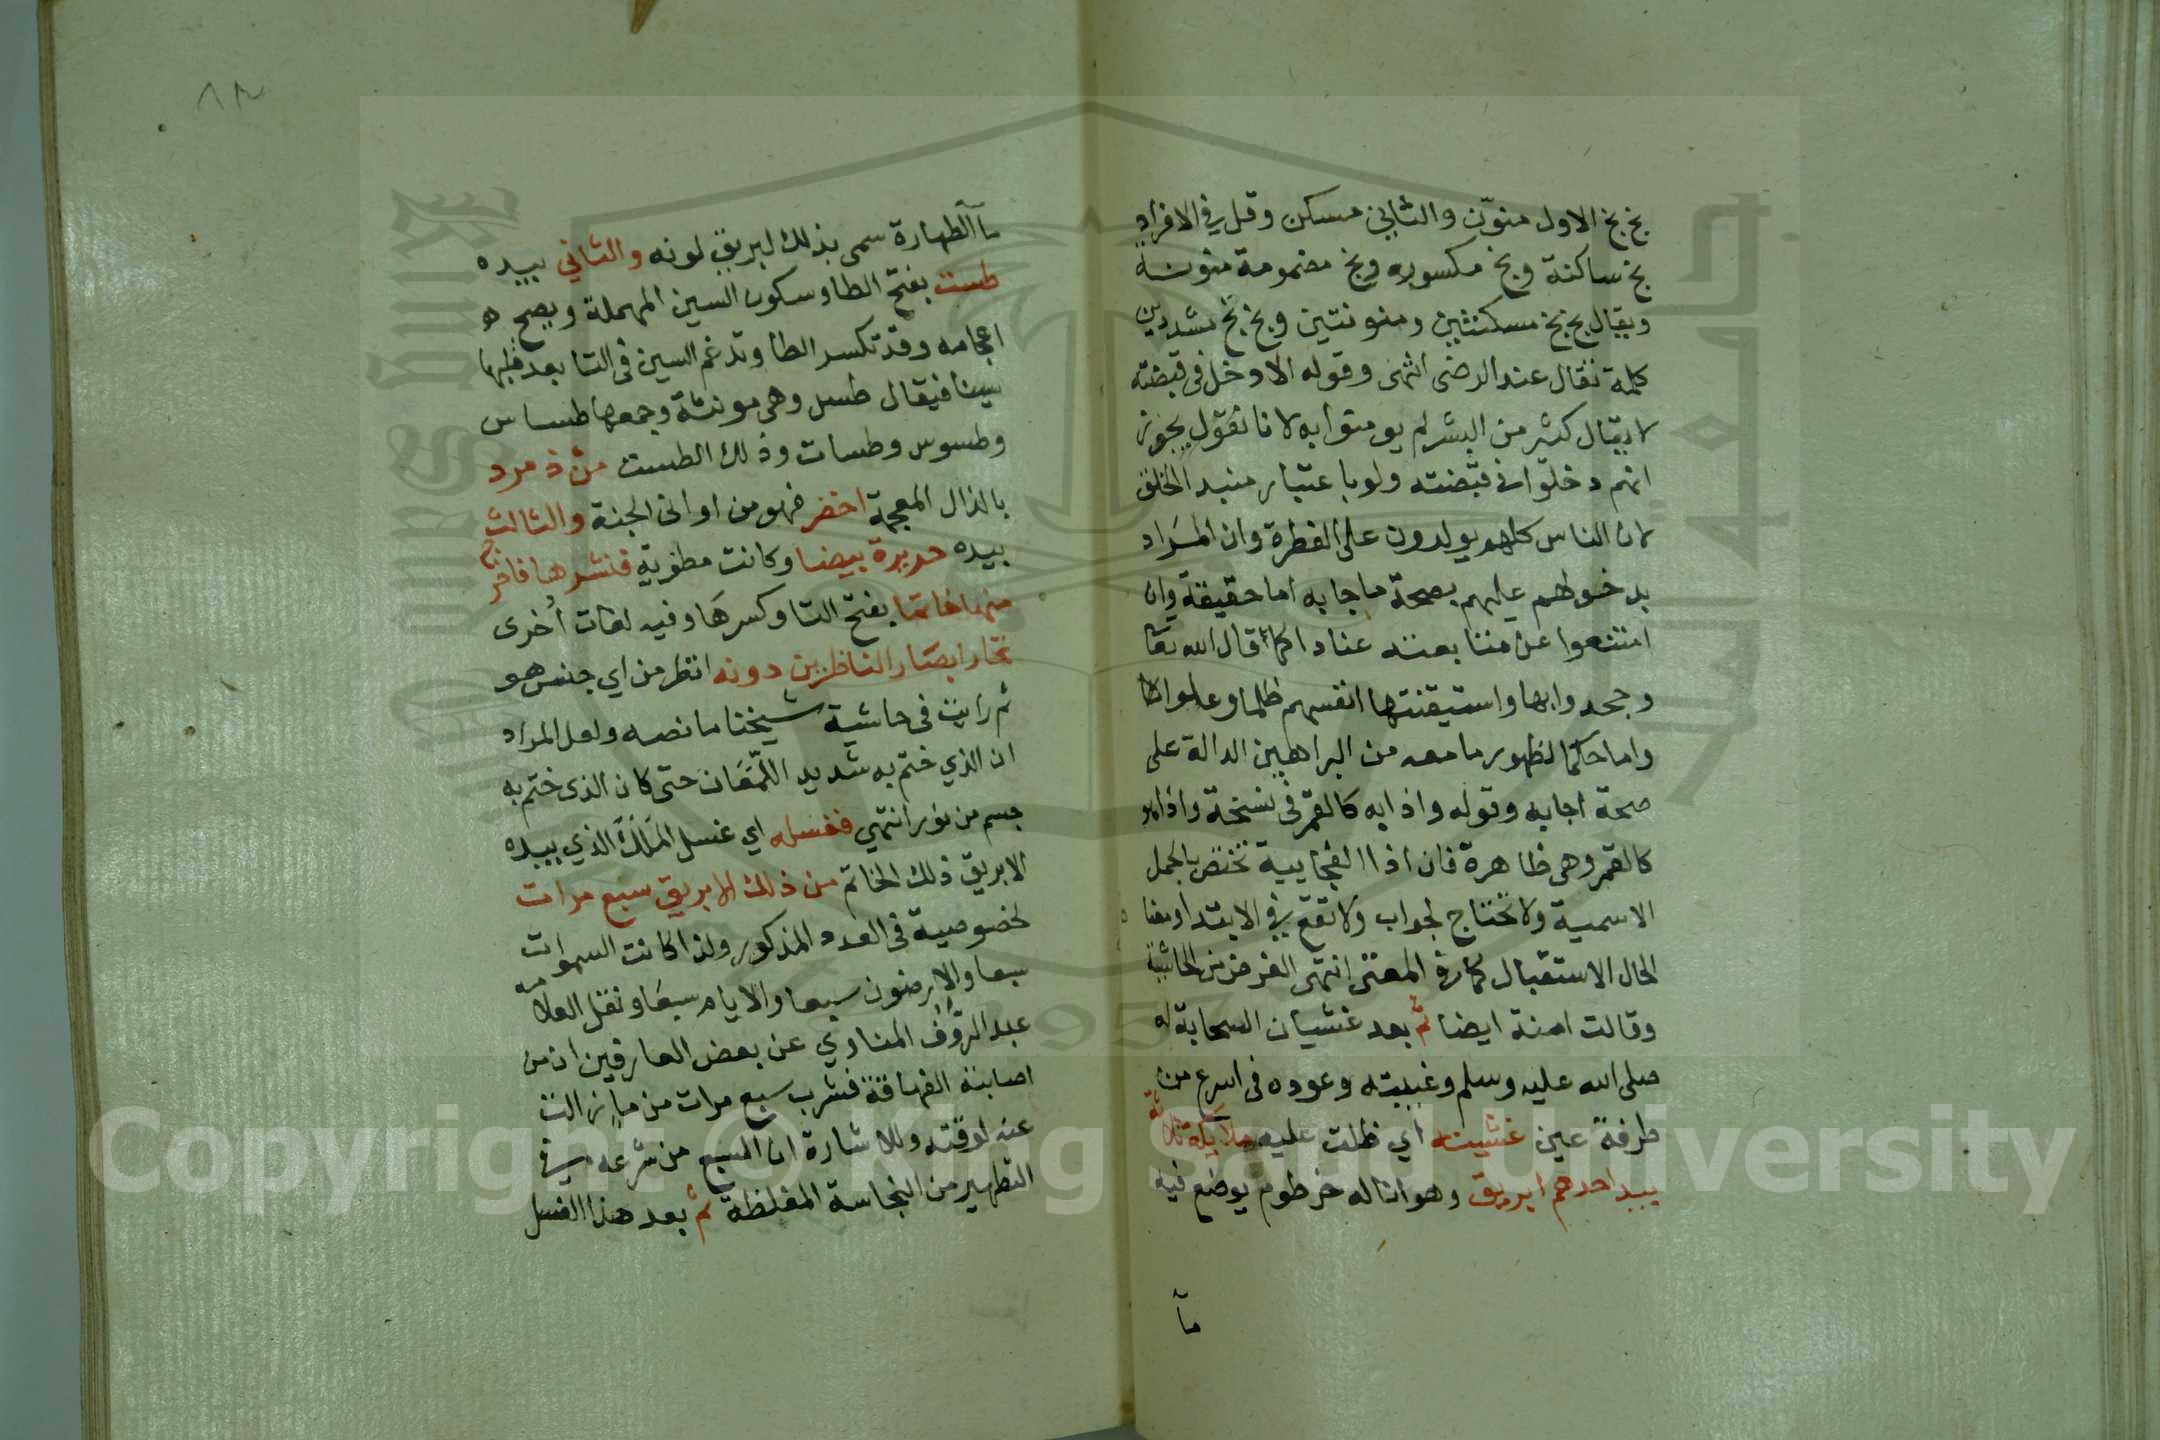 بخ بخ الاول منوّن والثاني مسكن وقل في الافراد
بخ ساكنة وبخ مكسوره وبخ مضمومة منونة
ويقال بخ بخ مسكنتين ومنونتين وبخ بخ مشددين
كلمة تقال عند الرضى انتهى وقوله الا دخل في قبضته
لا يقال كثير من البشر لم يومنوا به لانا نقول يجوز
انهم دخلوا في قبضته ولو باعتبار مبدا الخلق
لان الناس كلهم يولدون على الفطرة وان المراد
بدخولهم عليهم بصحة ما جا به اما حقيقة وان
امتنعوا عن متابعته عنادا كما قال الله تعا
وجحدوا بها واستيقنتها انفسهم ظلما وعلوا
واما حكما لظهور ما معه من البراهين الدالة على
صحة اجابه وقوله واذا به كالقمر في نسخة واذا هو
كالقمر وهى ظاهرة فان اذا الفجاييه تختص بالجمل
الاسمية ولا تحتاج لجواب ولا تقع في الابتدا ومعنا
الحال الاستقبال كما في المغنى انتهى الغرض من الحاشية
وقالت امنة ايضا ثم بعد غشيان السحابة له
صلى الله عليه وسلم وغيبته وعوده في اسرع من
طرفة عين غشيته اي ظلت عليه ملايكة ثلاثة
بيد احدهم ابريق وهو انا له خرطوم يوضع فيه
مآ
٨٢
مآ الطهارة سمى بذلك لبريق لونه والثاني بيده
طست بفتح الطا وسكون السين المهملة ويصح
اعجامه وقد تكسر الطا وتدغم السين في التا بعد قلبها
سينا فيقال طس وهى مونثة وجمعها طساس
وطسوس وطسات وذلك الطست من ذمرد
بالذال المعجمة اخضر فهو من اوانى الجنة والثالث
بيده حريرة بيضا وكانت مطوية فنشرها فاخرج
منها خاتما بفتح التا وكسرها وفيه لغات أخرى
تحار ابصار الناظرين دونه انظر من اي جنس هو
ثم رايت في حاشية شيخنا ما نصه ولعل المراد
ان الذي ختم به شديد اللمعان حتى كان الذى ختم به
جسم من نور انتهي فغسله اي غسل الملك الذي بيده
الابريق ذلك الخاتم من ذلك الابريق سبع مرات
لخصوصية في العدد المذكور ولذا كانت السموات
سبعا والارضون سبعا والايام سبعا ونقل العلامه
عبد الروف المناوي عن بعض العارفين ان من
اصابته الفهاقة فشرب سبع مرات من مآ زالت
عنه لوقته وللاشارة ان السبع من شرعه في
التطهير من النجاسة المغلظة ثم بعد هذا الغسل
Copyright © King Saud University
1957